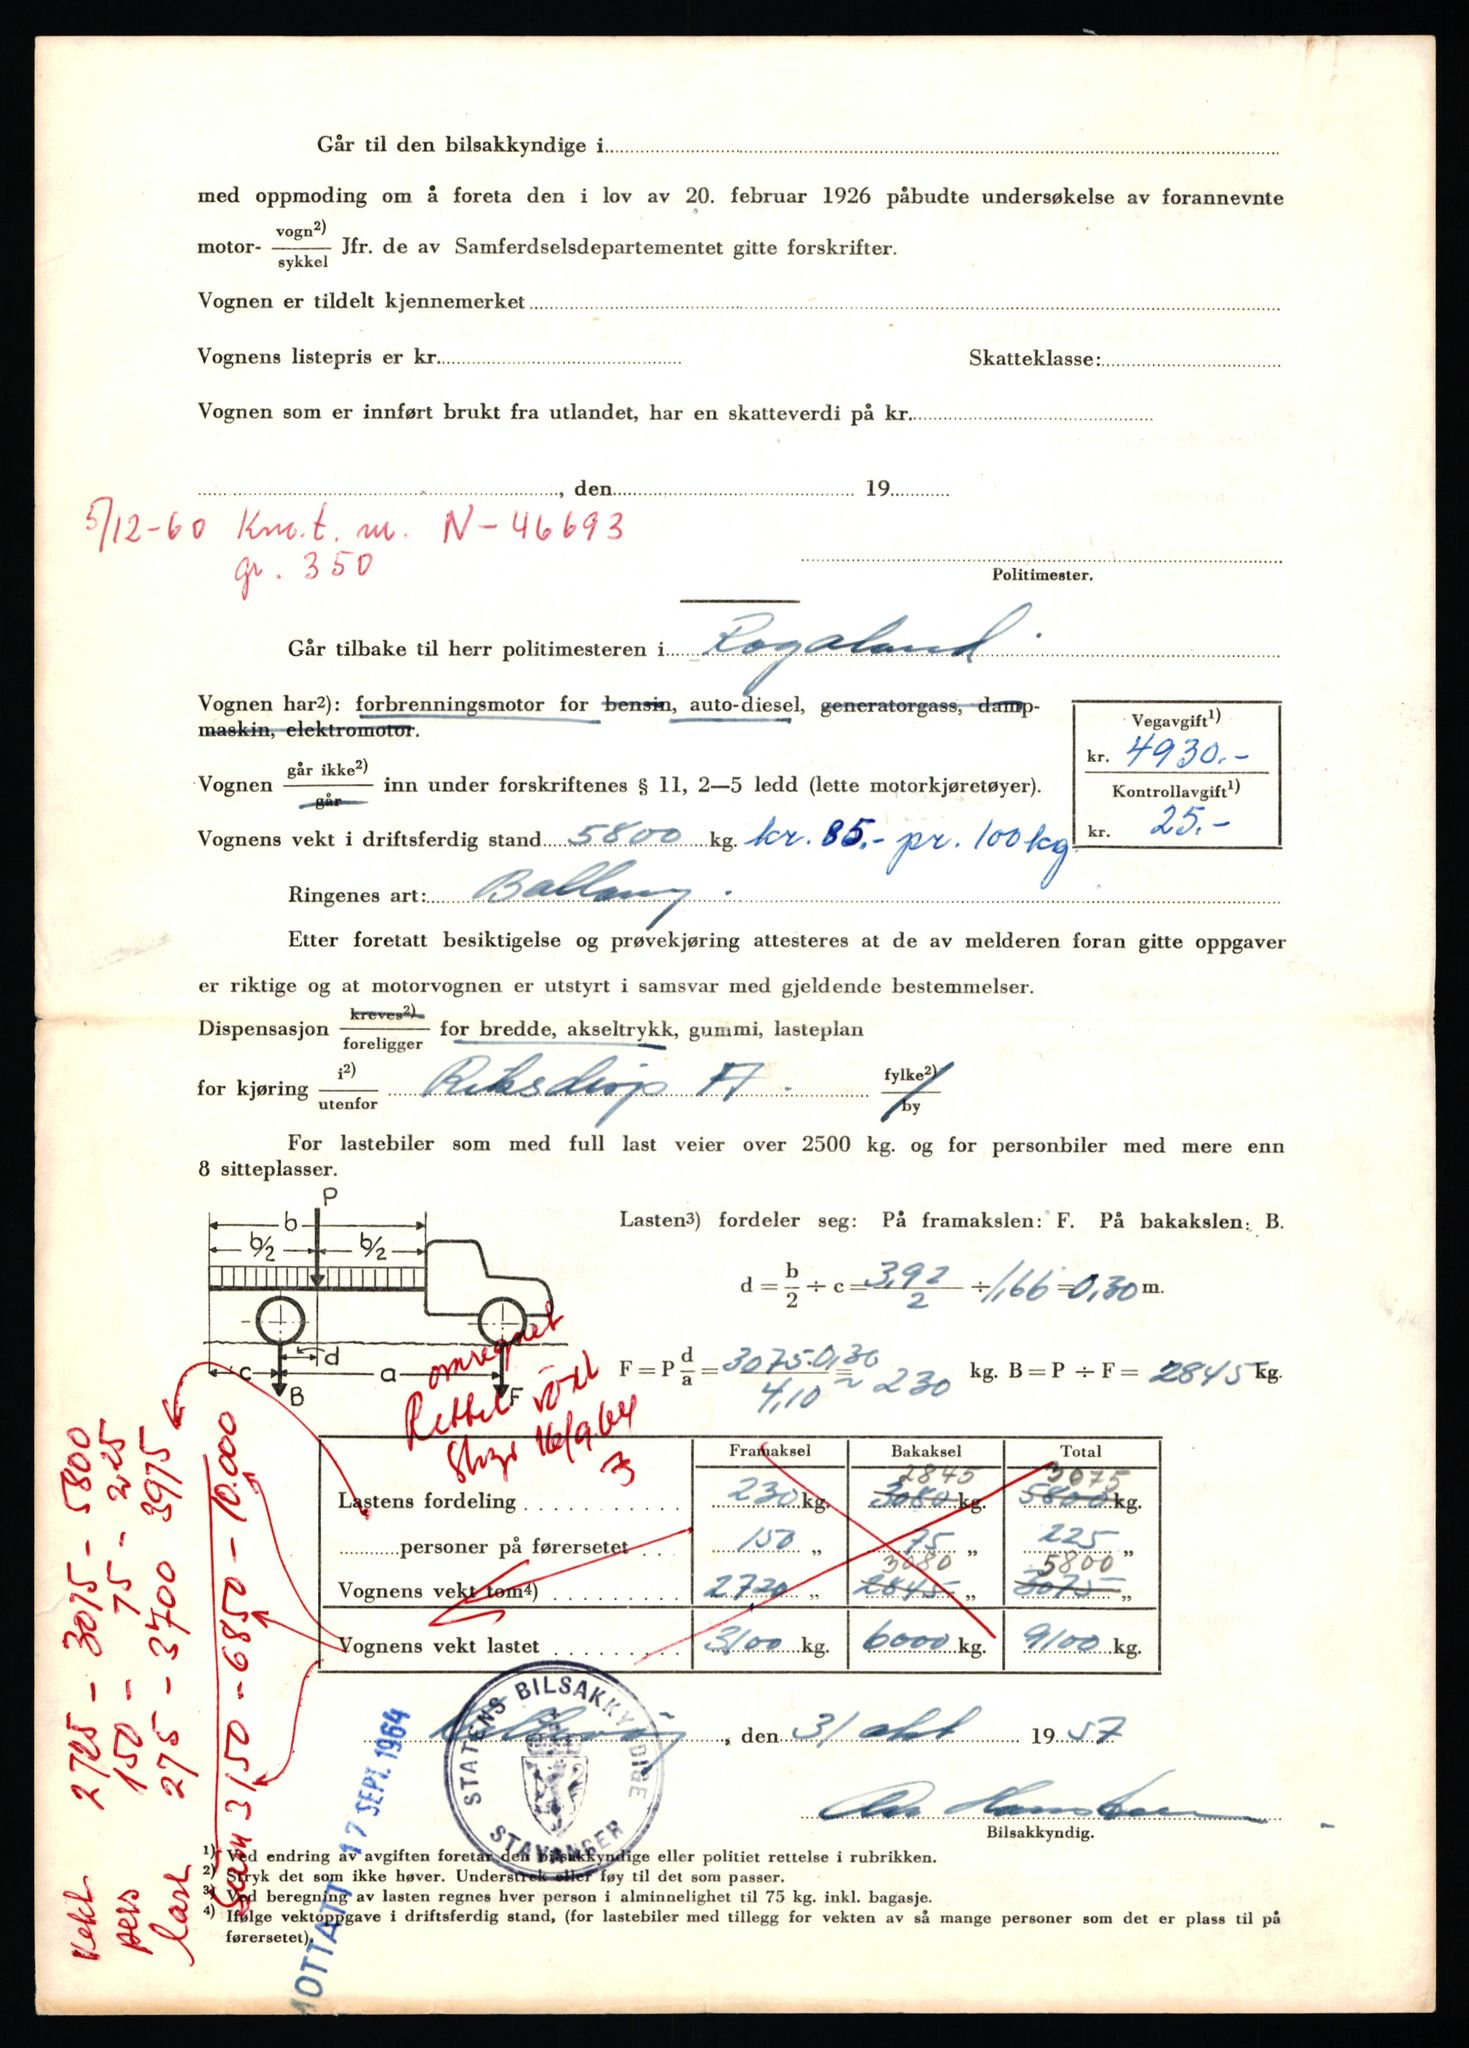 Går til den bilsakkyndige i
med oppmoding om å foreta den i lov av 20. februar 1926 påbudte undersøkelse av forannevnte
motor- vogn2) / sykkel Jfr. de av Samferdselsdepartementet gitte forskrifter.
Vognen er tildelt kjennemerket
Vognens listepris er kr. Skatteklasse:
Vognen som er innført brukt fra utlandet, har en skatteverdi på kr.
, den 19
5/12-60 Km.t. m. N-46693
gr. 350
Politimester.
Går tilbake til herr politimesteren i Rogaland
Vognen har2): forbrenningsmotor for bensin, auto-diesel, generatorgass, damp-
maskin, elektromotor.
Vegavgift1)
kr. 4930.-
Kontrollavgift1)
kr. 25.-
Vognen går ikke2) / går inn under forskriftenes § 11, 2—5 ledd (lette motorkjøretøyer).
Vognens vekt i driftsferdig stand 5800 kg. kr. 85.- pr. 100 kg
Ringenes art: Ballong
Etter foretatt besiktigelse og prøvekjøring attesteres at de av melderen foran gitte oppgaver
er riktige og at motorvognen er utstyrt i samsvar med gjeldende bestemmelser.
Dispensasjon kreves2) / foreligger for bredde, akseltrykk, gummi, lasteplan
for kjøring i2) / utenfor fylke2) / by
For lastebiler som med full last veier over 2500 kg. og for personbiler med mere enn
8 sitteplasser.
P
b
b/2 b/2
c d a
B F
Lasten3) fordeler seg: På framakslen: F. På bakakslen: B.
d = b/2 ÷ c = 3,92/2 ÷ 1,66 = 0,30 m.
F = P d/a = 3075·0,30 / 4,10 = ~ 230 kg. B = P ÷ F = 2845 kg.
omregnet
Rettet
16/9 64
Framaksel Bakaksel Total
2845 3075
Lastens fordeling 230 kg. 3080 kg. 5800 kg.
personer på førersetet 150 „ 75 „ 225 „
3080 5800
Vognens vekt tom4) 2720 „ 2845 „ 3075 „
Vognens vekt lastet 3100 kg. 6000 kg. 9100 kg.
Vekt 2725 - 3075 - 5800
pers 150 - 75 - 225
last 275 - 3700 3975
Sum 3150 - 6850 - 10.000
, den 31 okt 1957
STATENS BILSAKKYNDIGE
STAVANGER
MOTTATT 17 SEPT. 1964
Bilsakkyndig.
1) Ved endring av avgiften foretar den bilsakkyndige eller politiet rettelse i rubrikken.
2) Stryk det som ikke høver. Understrek eller føy til det som passer.
3) Ved beregning av lasten regnes hver person i alminnelighet til 75 kg. inkl. bagasje.
4) Ifølge vektoppgave i driftsferdig stand, (for lastebiler med tillegg for vekten av så mange personer som det er plass til på
førersetet).